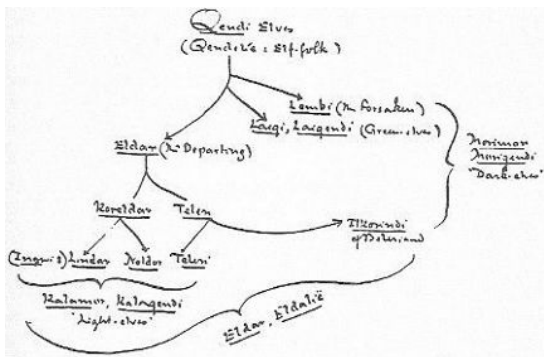 Qendi Elves
(Qendelie = Elf-folk)
Lembi (the Forsaken)
Laiqi, Laiqendi (Green-elves)
Eldar (the Departing)
Morimor
Moriqendi
"Dark-elves"
Koreldar Teleri
Ilkorindi
of Beleriand
(Ingwi) Lindar Noldor Teleri
Kalamor, Kalaqendi
"Light-elves"
Eldar, Eldalië